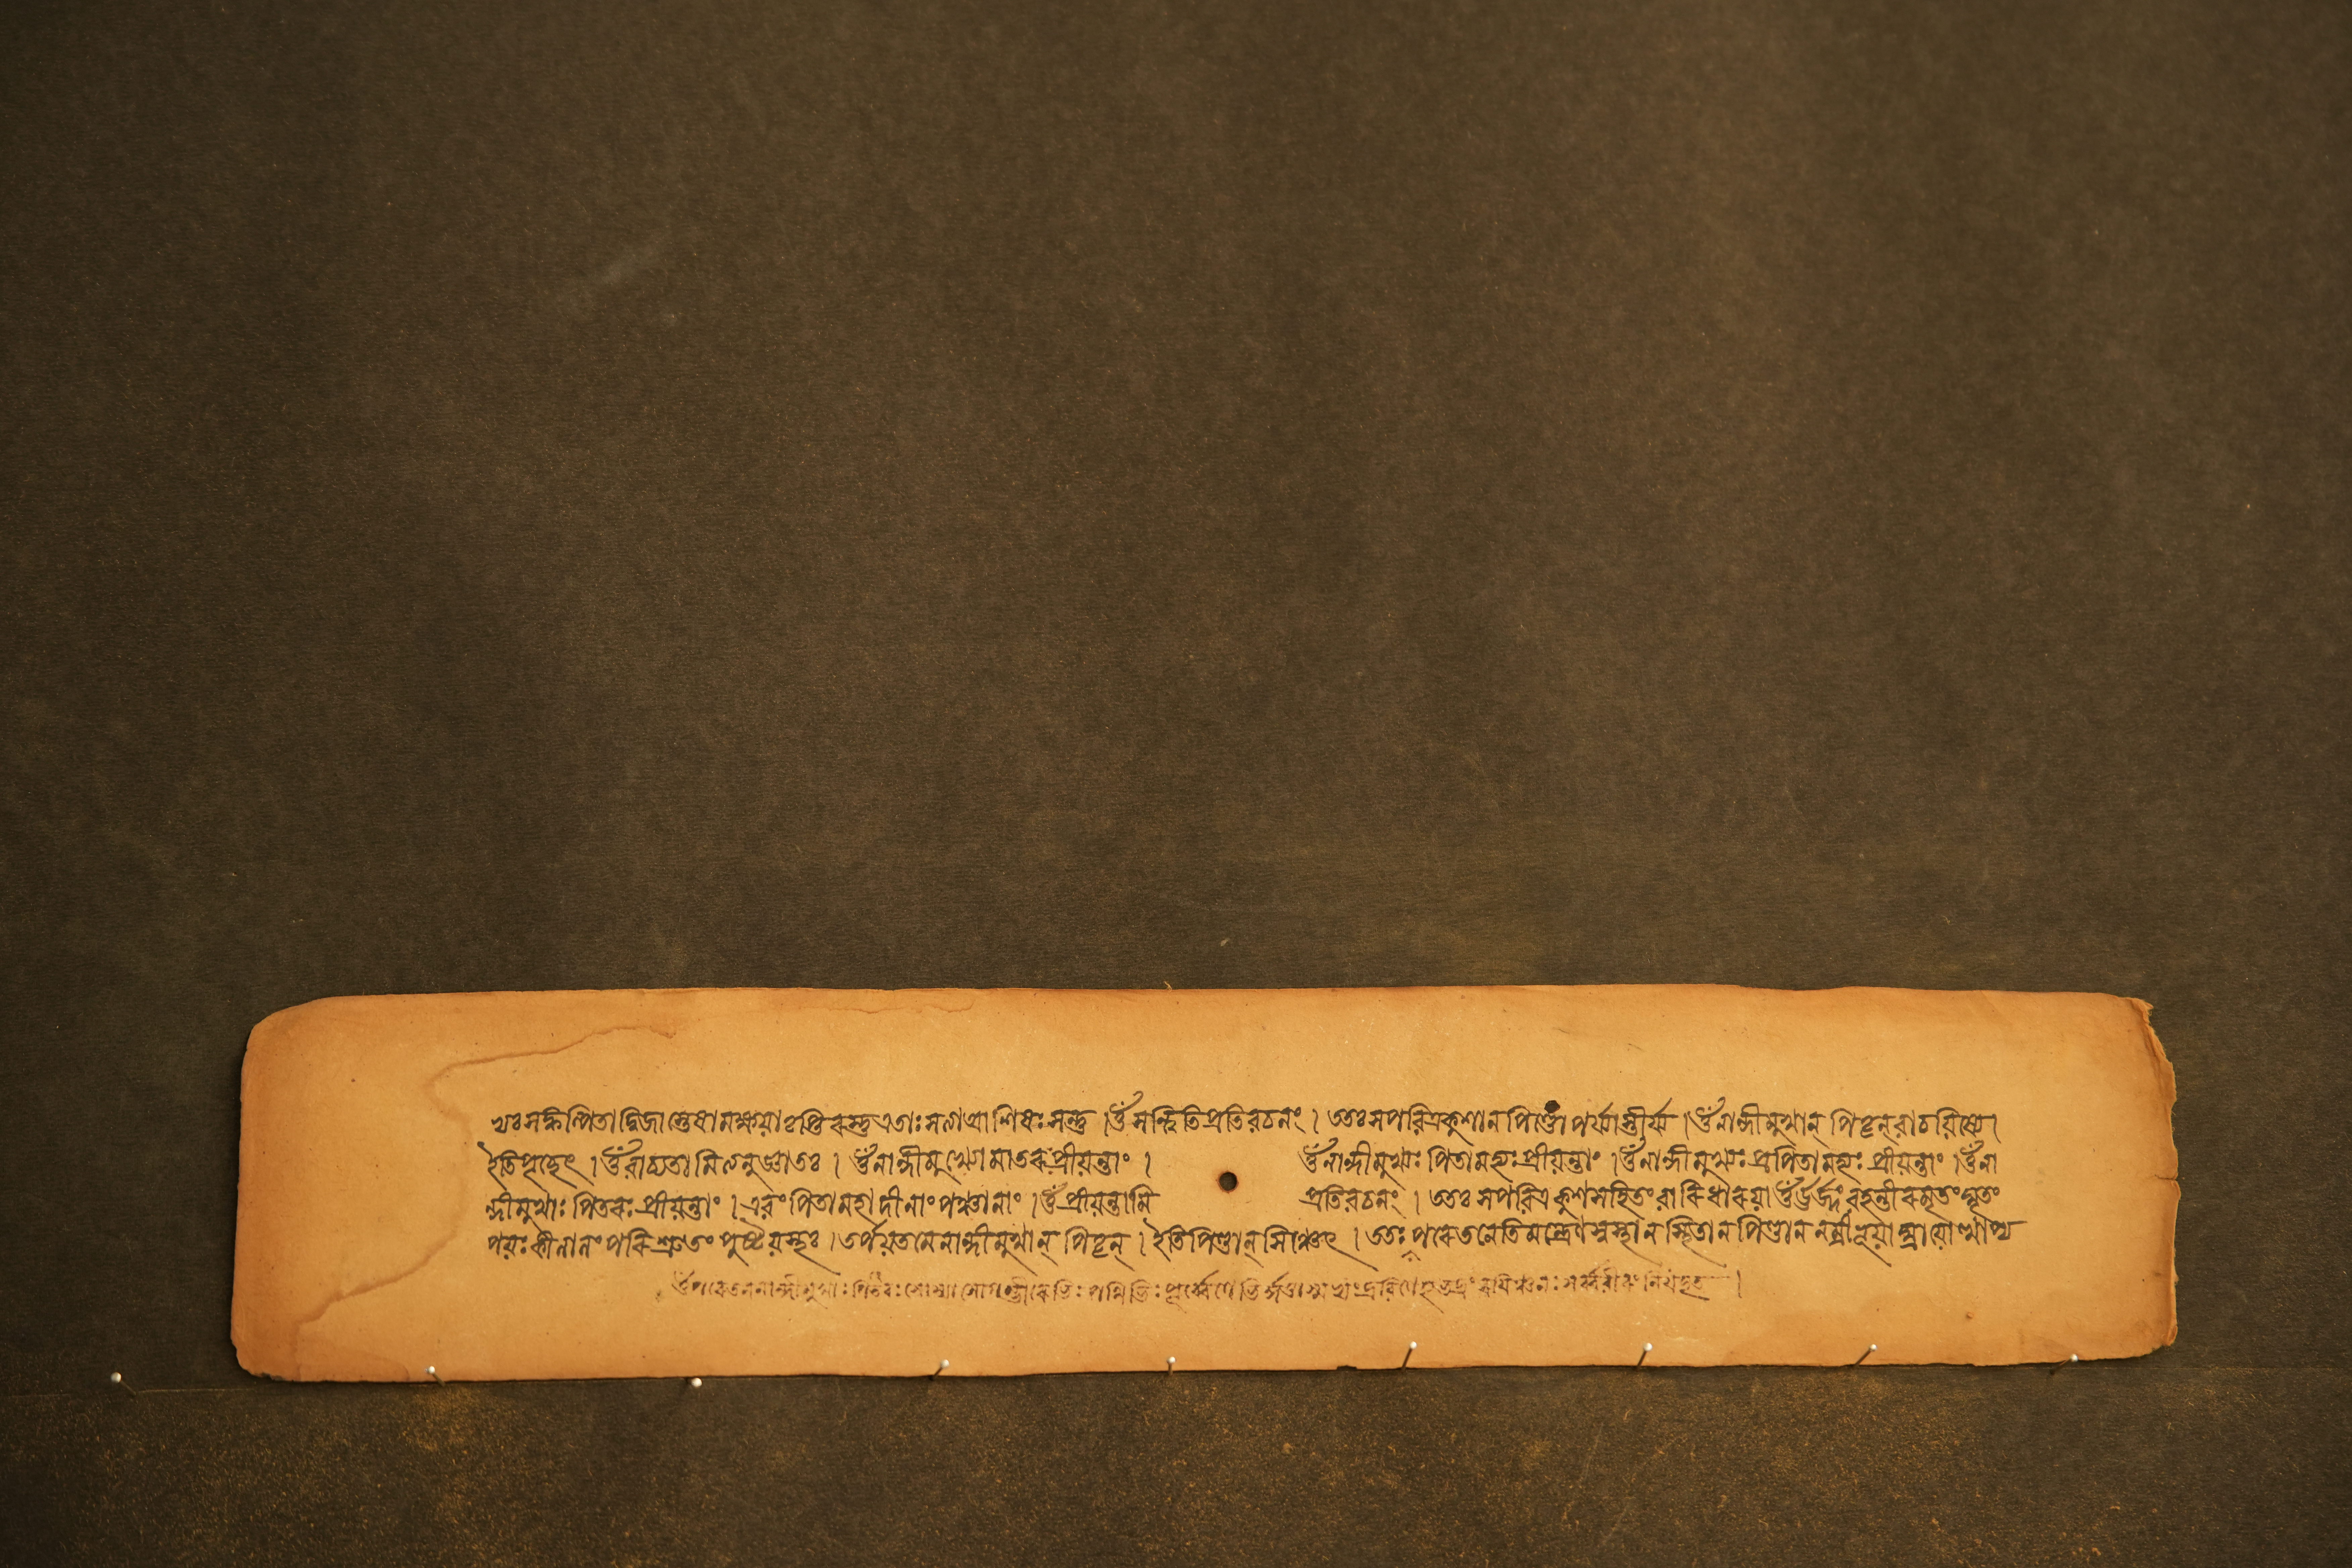 খঃসঙ্কল্পিতাদ্বিজাস্তেষামক্ষয়াতৃপ্তিরস্তুএতাঃসত্যাআশিষঃসন্তু ।ওঁসন্ত্বিতিপ্রতিবচনং । ততঃসপবিত্রকুশানপিণ্ডোপর্য্যাস্তীর্য্য ।ওঁনান্দীমুখান্ পিতৄন্বাচয়িষ্যে।
ইতিপৃচ্ছেৎ ।ওঁবাচ্যতামিত্যনুজ্ঞাতঃ । ওঁনান্দীমুখ্যোমাতরঃপ্রীয়ন্তাং । ওঁনান্দীমুখ্যঃ পিতামহ্যঃপ্রীয়ন্তাং ।ওঁনান্দীমুখ্যঃপ্রপিতামহ্যঃ প্রীয়ন্তাং ।ওঁনা
ন্দীমুখাঃ পিতরঃপ্রীয়ন্তাং ।এবংপিতামহাদীনাংপঞ্চানাং ।ওঁপ্রীয়ন্তামি প্রতিবচনং । ততঃ সপবিত্রকুশসহিতংবারিধারয়াওঁঊর্জ্জংবহন্তীরমৃতংঘৃতং
পয়ঃকীলালংপরিশ্রুতং পুষ্টয়স্থঃ ।তর্পয়তমেনান্দীমুখান্ পিতৄন্ ।ইতিপিণ্ডান্ সিঞ্চেৎ । ততঃ পরেতনেতিমন্ত্রেণস্বস্থানস্থিতানপিণ্ডান
ওঁপরেতননান্দীমুখাঃপিতরঃসোম্যাসোগম্ভীরেভিঃপথিভিঃ